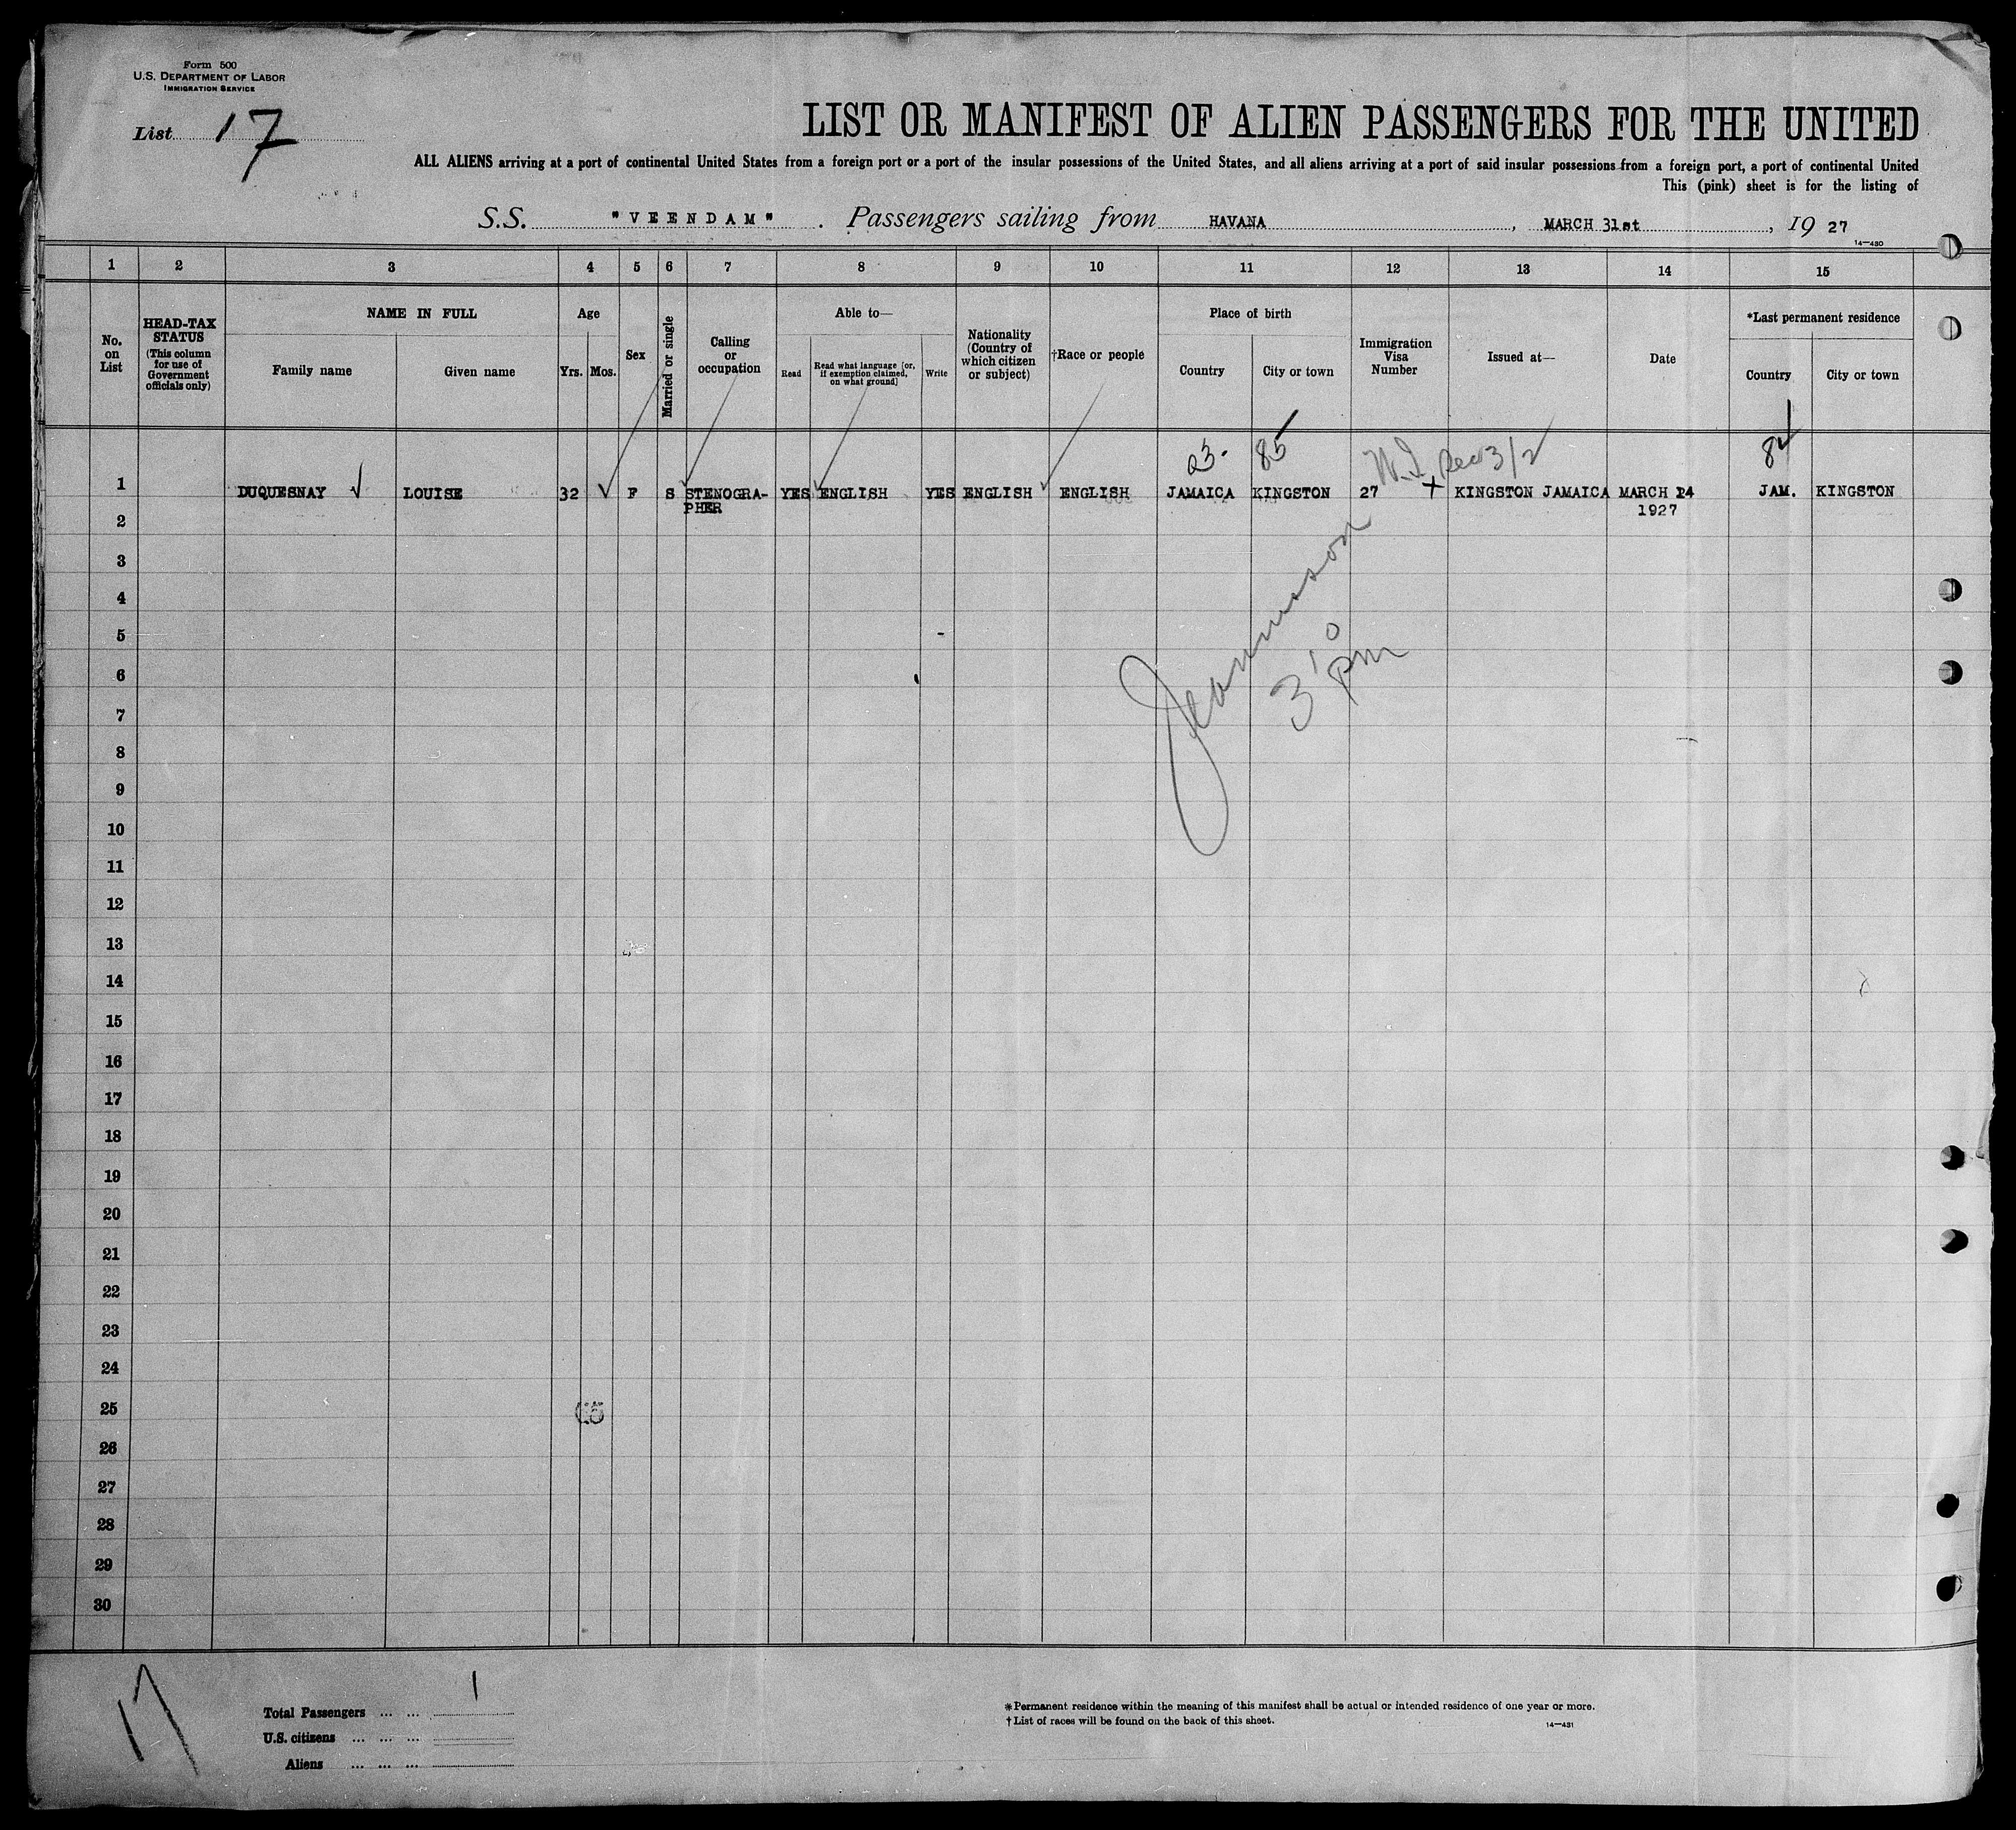 Form 500
U.S. DEPARTMENT OF LABOR
IMMIGRATION SERVICE
List 17
LIST OR MANIFEST OF ALIEN PASSENGERS FOR THE UNITED
ALL ALIENS arriving at a port of continental United States from a foreign port or a port of the insular possessions of the United States, and all aliens arriving at a port of said insular possessions from a foreign port, a port of continental United
This (pink) sheet is for the listing of
S.S. "VEENDAM". Passengers sailing from HAVANA, MARCH 31st, 19 27
14—430
1 2 3 4 5 6 7 8 9 10 11 12 13 14 15
No. on List
HEAD-TAX STATUS
(This column for use of Government officials only)
NAME IN FULL
Family name
Given name
Age
Yrs. Mos.
Sex
Married or single
Calling or occupation
Able to—
Read
Read what language [or, if exemption claimed, on what ground]
Write
Nationality (Country of which citizen or subject)
†Race or people
Place of birth
Country
City or town
Immigration Visa Number
Issued at—
Date
*Last permanent residence
Country
City or town
85
3/2
1 DUQUESNAY LOUISE 32 F S STENOGRA- YES ENGLISH YES ENGLISH ENGLISH JAMAICA KINGSTON 27 KINGSTON JAMAICA MARCH 24 JAM. KINGSTON
PHER 1927
2
3
4
5
6
3 10 pm
7
8
9
10
11
12
13
14
15
16
17
18
19
20
21
22
23
24
25
26
27
28
29
30
17
Total Passengers ... ... 1
U.S. citizens ... ... ...
Aliens ... ... ...
*Permanent residence within the meaning of this manifest shall be actual or intended residence of one year or more.
†List of races will be found on the back of this sheet.
14—431